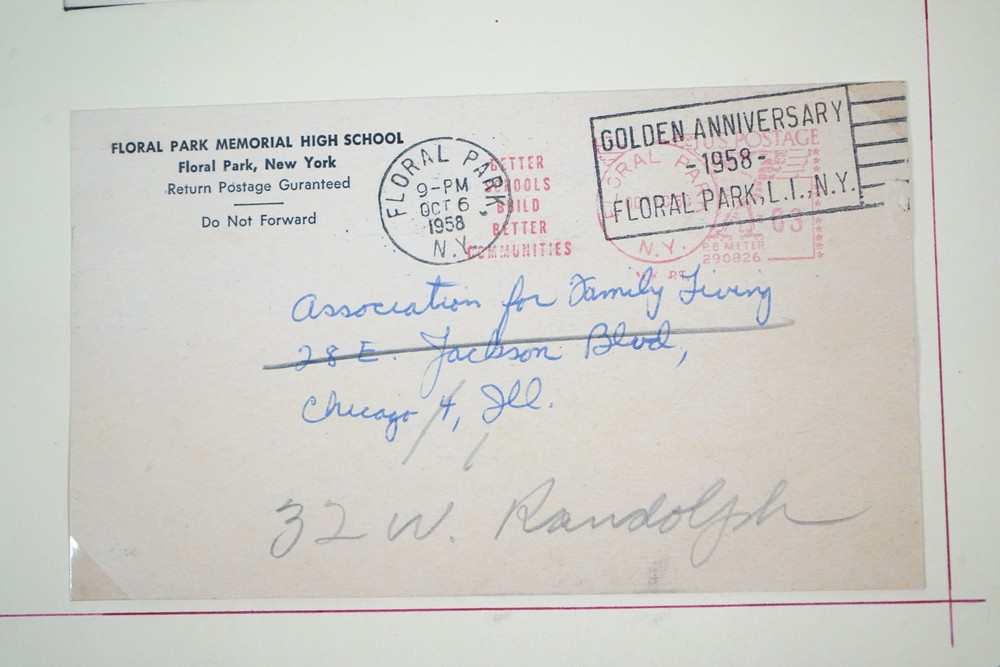 FLORAL PARK MEMORIAL HIGH SCHOOL
Floral Park, New York
Return Postage Guranteed
Do Not Forward
FLORAL PARK,
9-PM
OCT 6
1958
N.Y.
BETTER
SCHOOLS
BUILD
BETTER
COMMUNITIES
FLORAL PARK
N.Y.
U.S. POSTAGE
03
PB METER
290826
GOLDEN ANNIVERSARY
-1958-
FLORAL PARK, L.I., N.Y.
Association for Family Living
28 E. Jackson Blvd,
Chicago 4, Ill.
32 W. Randolph